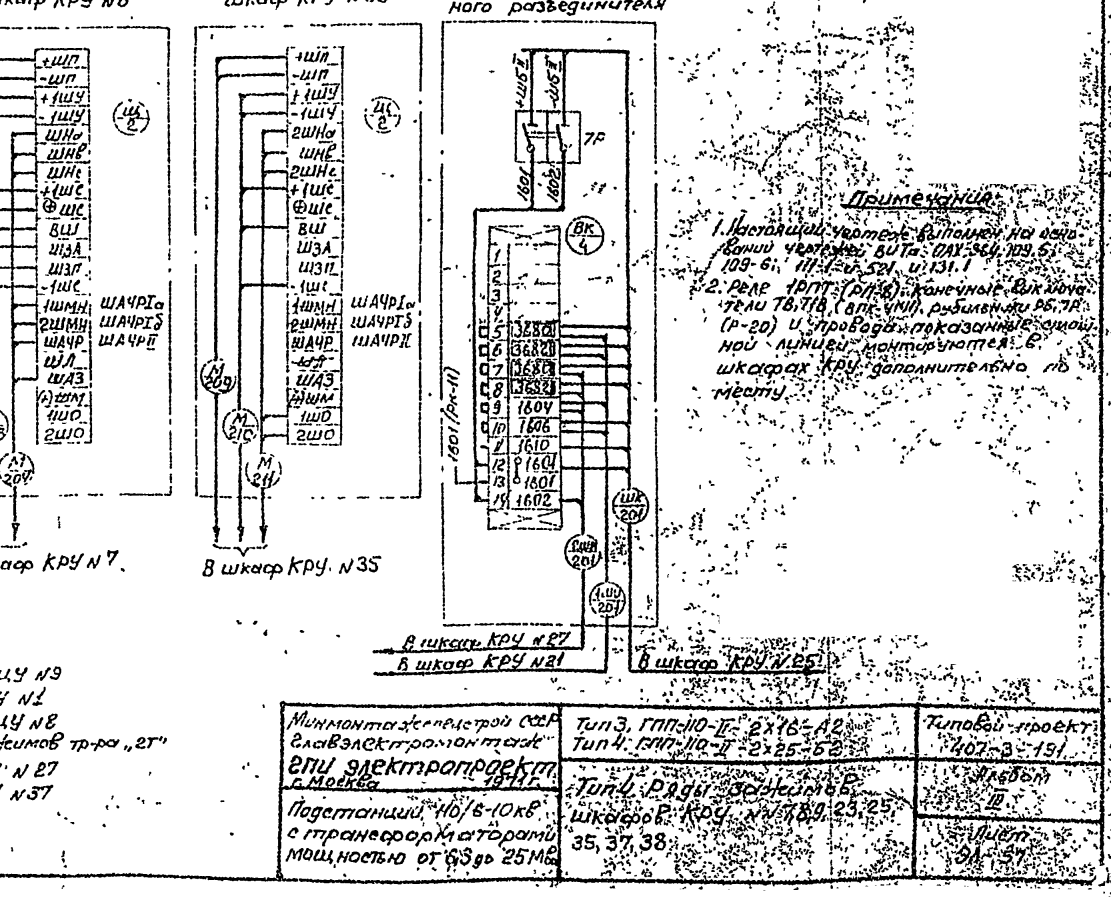 КРУ N8
шкаф КРУ
ного разъединителя
+ШП
-ШП
+1ШУ
-1ШУ
ШНа
ШНв
ШНс
+1ШС
⊕ШС
ВШ
ШЗА
ШЗП
-1ШС
1ШМН ШАЧРIа
2ШМН ШАЧРIб
ШАЧР ШАЧРII
ШЛ
ШАЗ
(+)ШМ
1ШО
2ШО
Ш
2
М
209
каф КРУ N7.
+ШП
-ШП
+1ШУ
-1ШУ
2ШНа
ШНв
2ШНс
+1ШС
⊕ШС
ВШ
ШЗА
ШЗП
-1ШС
1ШМН ШАЧРIа
2ШМН ШАЧРIб
ШАЧР ШАЧРII
ШАЗ
(+)ШМ
1ШО
2ШО
Ш
2
М
209
М
210
М
211
В шкаф КРУ. N35
+ШБII
-ШБII
7Р
1601
1602
ВК
4
1
2
3
4
5
6
7
8
9 1604
10 1606
11 1610
12 1601
13 1601
14 1602
1601/(РК-11)
ШК
201
201
1ШУ
201
В шкаф КРУ N27
В шкаф КРУ N21
В шкаф КРУ N25
Примечания:
1. Настоящий чертеж выполнен на осно-
ваний чертежей ВИТа ОАХ.364.109.5;
109-6; 111.1 и 521 и 131.1
2. Реле 1РПТ (РП-8), конечные выключа-
тели ТВ, Т1В (ВПК-4М11), рубильники РБ, 7Р
(Р-20) и провода, показанные сплош-
ной линией монтируются в
шкафах КРУ дополнительно по
месту.
N9
N1
N8
зажимов тр-ра „2Т"
N 27
N37
Минмонтажспецстрой СССР
Главэлектромонтаж
ГПИ электропроект
г. Москва 1977г.
Подстанции 110/6-10кВ
с трансформаторами
мощностью от 6,3 до 25 МВа
Тип3. ГПП-110-II-2х16-А2
Тип4. ГПП-110-II-2х25-Б2
Тип4. Ряды зажимов
шкафов КРУ NN 7,8,9,23,25
35, 37, 38.
Типовой проект
407-3-191
Альбом
III
Лист
ЭЛ-57